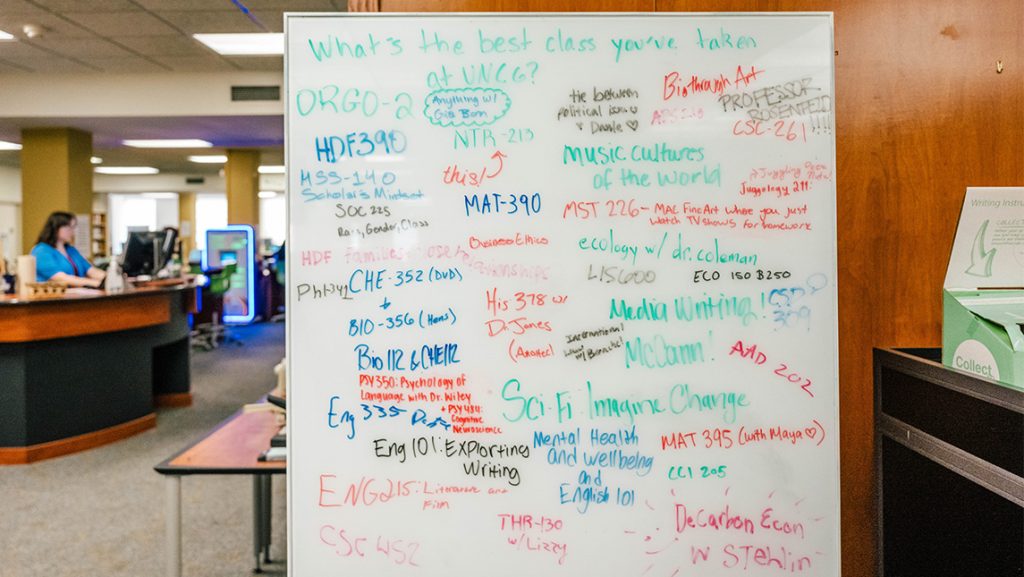 What's the best class you've taken
at UNCG?
ORGO-2
Anything w/
Gia Born
tie between
political issues
& Double ♡
Biothrough Art
PROFESSOR
ROSENFELD
!!!!
CSC-261
HDF390
NTR-213
this!
music cultures
of the world
HSS-140
Scholar's Mindset
MAT-390
Juggology 211:
SOC 225
Race, Gender, Class
MST 226- MAC Fine Art where you just
watch TV shows for homework
HDF families & close relationships
Business Ethics
ecology w/ dr. coleman
LIS600
ECO 150 B250
PHI 341
CHE-352 (DVD)
↓
BIO-356 (Hons)
His 378 w/
Dr. Jones
(Another)
Media Writing!
McCann!
CSD
309
International
AAD 202
Bio 112 & CHE 112
PSY350: Psychology of
Language with Dr. Wiley
+ PSY 434:
Cognitive
Neuroscience
Eng 335
Sci-Fi: Imagine Change
Eng 101: Explorting
Writing
Mental Health
and wellbeing
and
English 101
MAT 395 (with Maya ♡)
CCI 205
ENG215: Literature and
Film
CSC 452
THR-130
w/ Lizzy
DeCarbon Econ
w Stehlin
Writing Instru
COLLECT
Collect